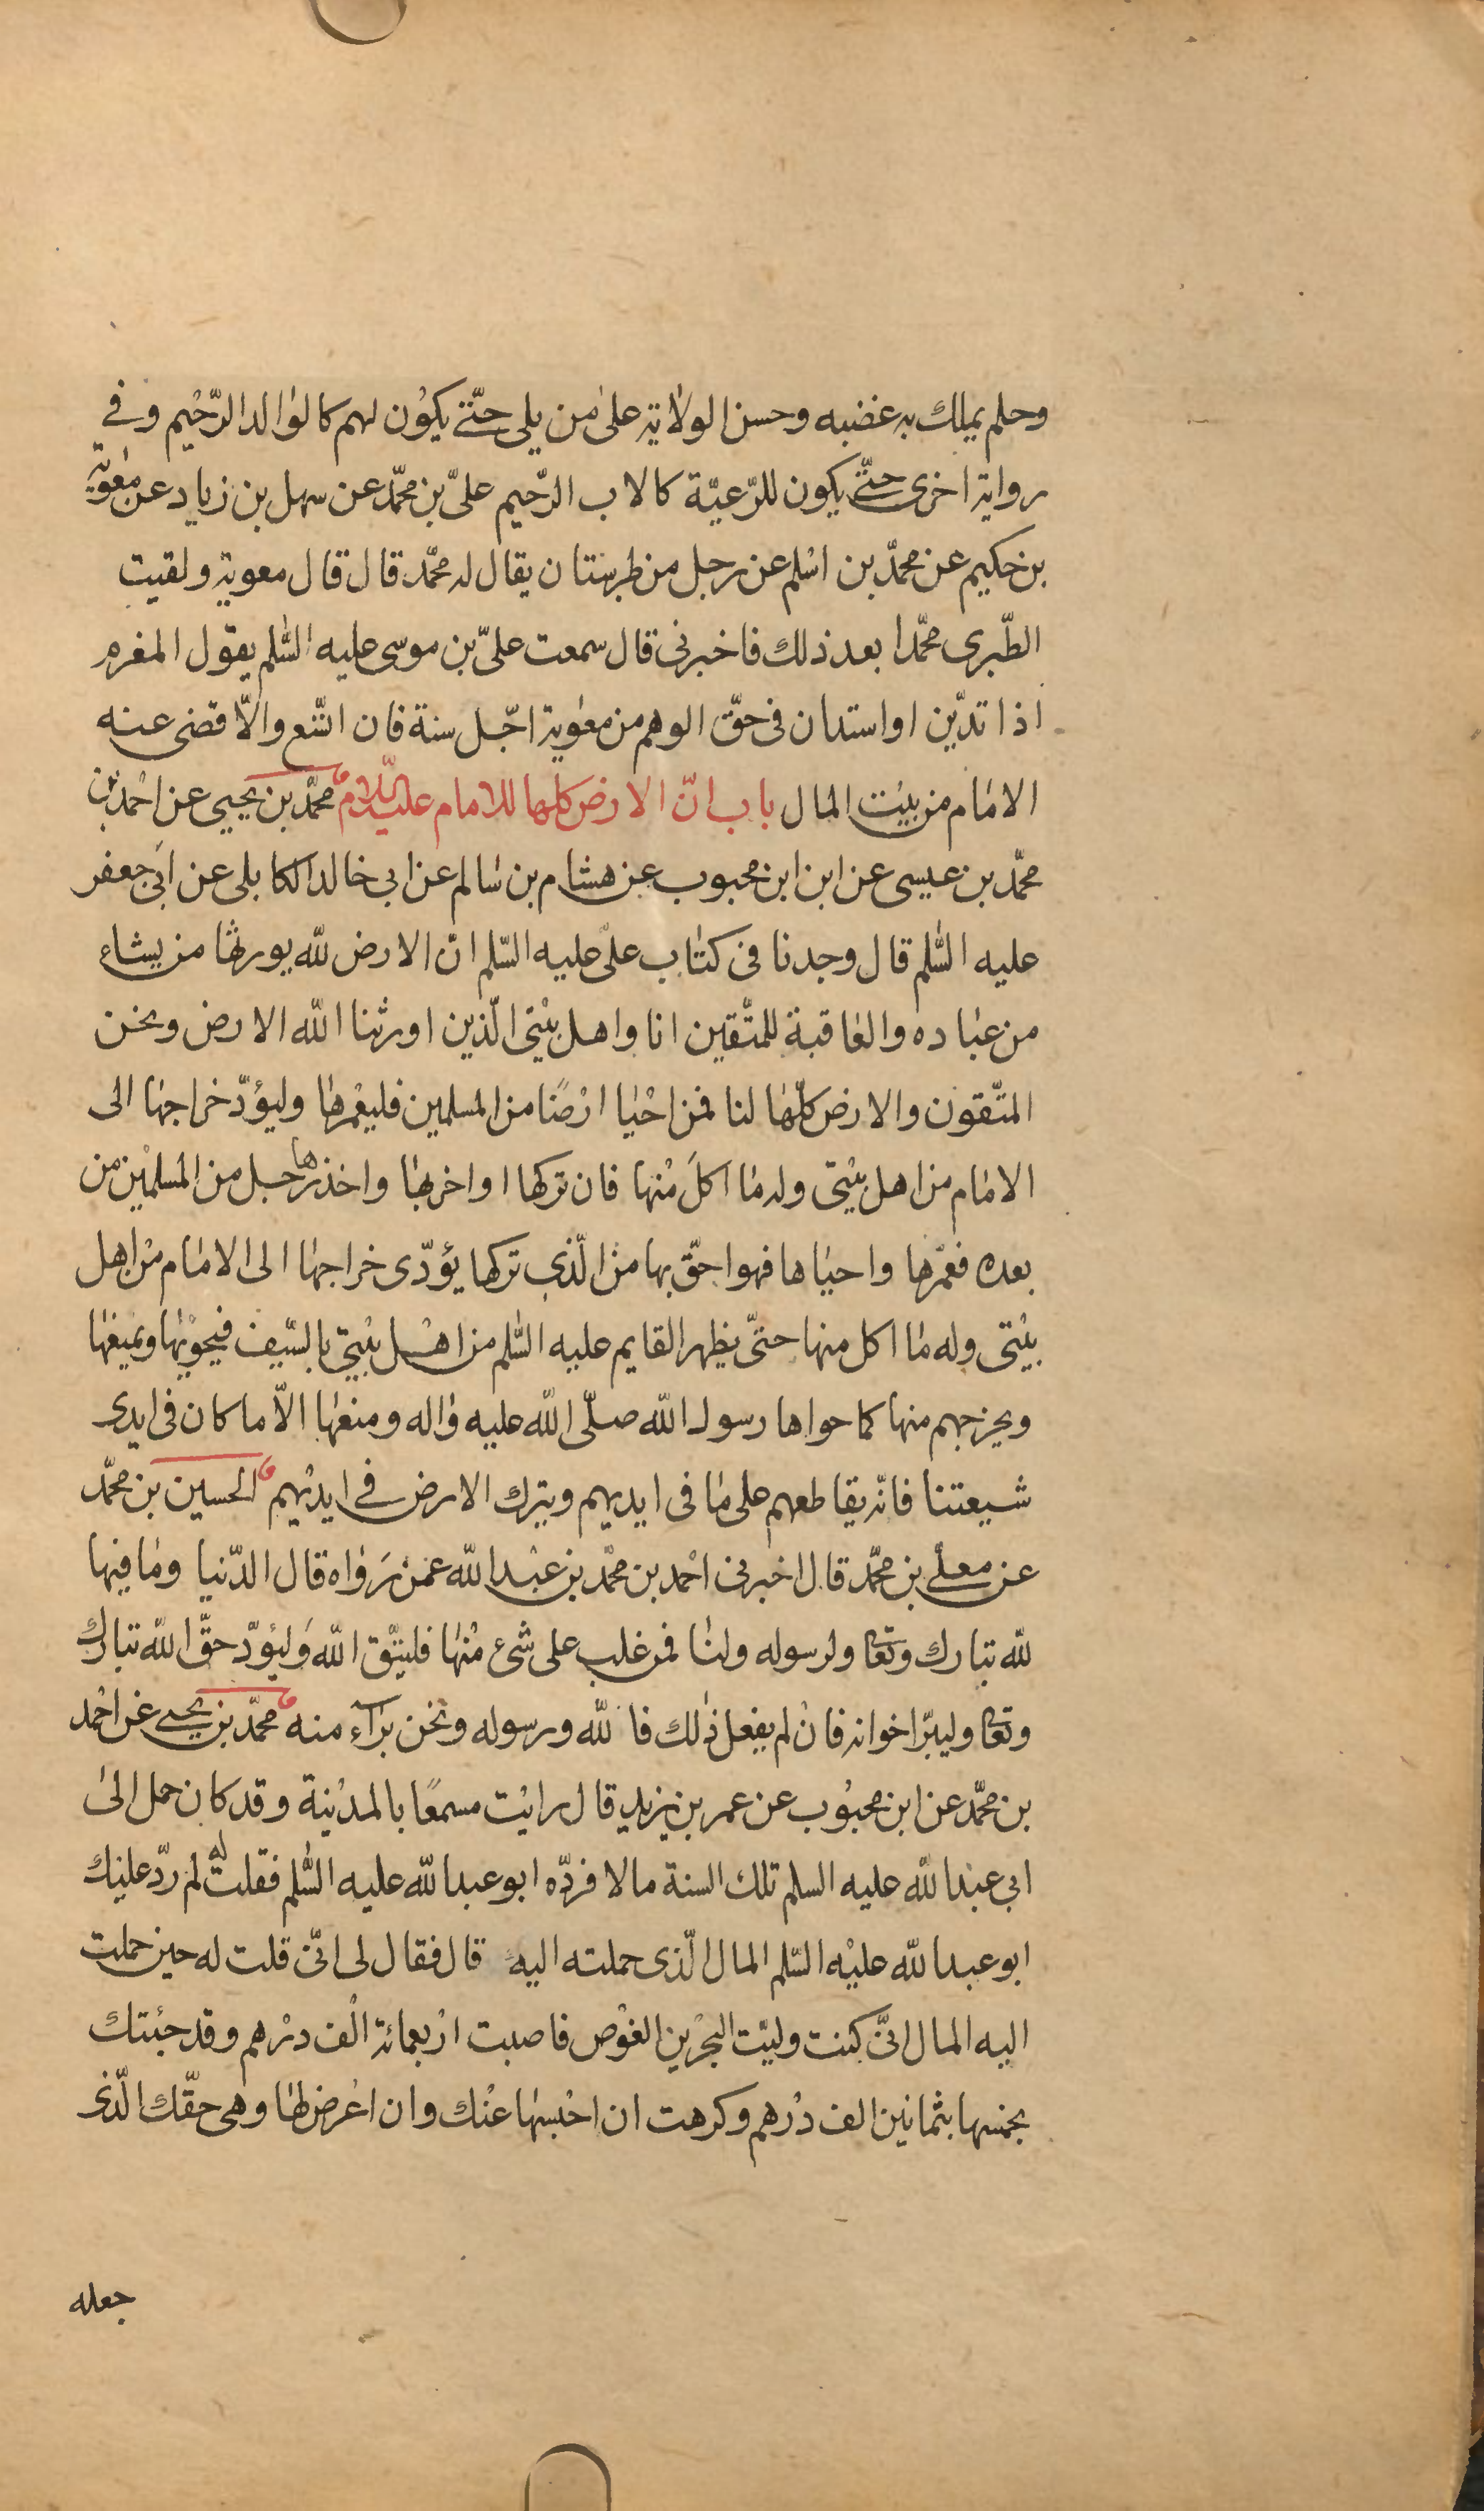 وحلم يملك به غضبه وحسن الولاية على من يلى حتّى يكون لهم كالوالد الرّحيم وفى
رواية اخرى حتّى يكون للرّعيّة كالاب الرّحيم علىّ بن محمّد عن سهل بن زياد عن معوية
بن حكيم عن محمّد بن اسلم عن رجل من طبرستان يقال له محمّد قال قال معوية ولقيت
الطّبرى محمّدا بعد ذلك فاخبرنى قال سمعت علىّ بن موسى عليه السّلم يقول المغرم
اذا تديّن او استدان فى حقّ الوهم من معوية اجّل سنة فان اتّسع والّا قضى عنه
الامام من بيت المال باب انّ الارض كلها للامام عليه السّلام محمّد بن يحيى عن احمد بن
محمّد بن عيسى عن ابن ابن محبوب عن هشام بن سالم عن ابى خالد الكابلى عن ابى جعفر
عليه السّلم قال وجدنا فى كتاب علىّ عليه السّلم انّ الارض للّه يورثها من يشاء
من عباده والعاقبة للمتّقين انا واهل بيتى الّذين اورثنا اللّه الارض ونحن
المتّقون والارض كلّها لنا فمن احيا ارضًا من المسلمين فليعمرها وليؤدّ خراجها الى
الامام من اهل بيتى وله ما اكل منها فان تركها او اخربها واخذها رجل من المسلمين من
بعده فعمّرها واحياها فهو احقّ بها من الّذى تركها يؤدّى خراجها الى الامام من اهل
بيتى وله ما اكل منها حتّى يظهر القايم عليه السّلم من اهل بيتى بالسّيف فيحويها ويمنعها
ويخرجهم منها كما حواها رسول اللّه صلّى اللّه عليه واله ومنعها الّا ما كان فى ايدى
شيعتنا فانّه يقاطعهم على ما فى ايديهم ويترك الارض فى ايديهم الحسين بن محمّد
عن معلى بن محمّد قال اخبرنى احمد بن محمّد بن عبد اللّه عمّن رواه قال الدّنيا وما فيها
للّه تبارك وتعا ولرسوله ولنا فمن غلب على شئ منها فليتّق اللّه وليؤدّ حقّ اللّه تبارك
وتعا وليبرّ اخوانه فان لم يفعل ذلك فاللّه ورسوله ونحن برآء منه محمّد بن يحيى عن احمد
بن محمّد عن ابن محبوب عن عمر بن يزيد قال رايت مسمعًا بالمدينة وقد كان حمل الى
ابى عبد اللّه عليه السلم تلك السنة مالا فردّه ابو عبد اللّه عليه السّلم فقلت له لم ردّ عليك
ابو عبد اللّه عليه السّلم المال الّذى حملته اليه قال فقال لى انّى قلت له حين حملت
اليه المال انّى كنت وليّت البحرين الغوص فاصبت اربعمائة الف درهم وقد جئتك
بخمسها بثمانين الف درهم وكرهت ان احبسها عنك وان اعرض لها وهى حقّك الّذى
جعله